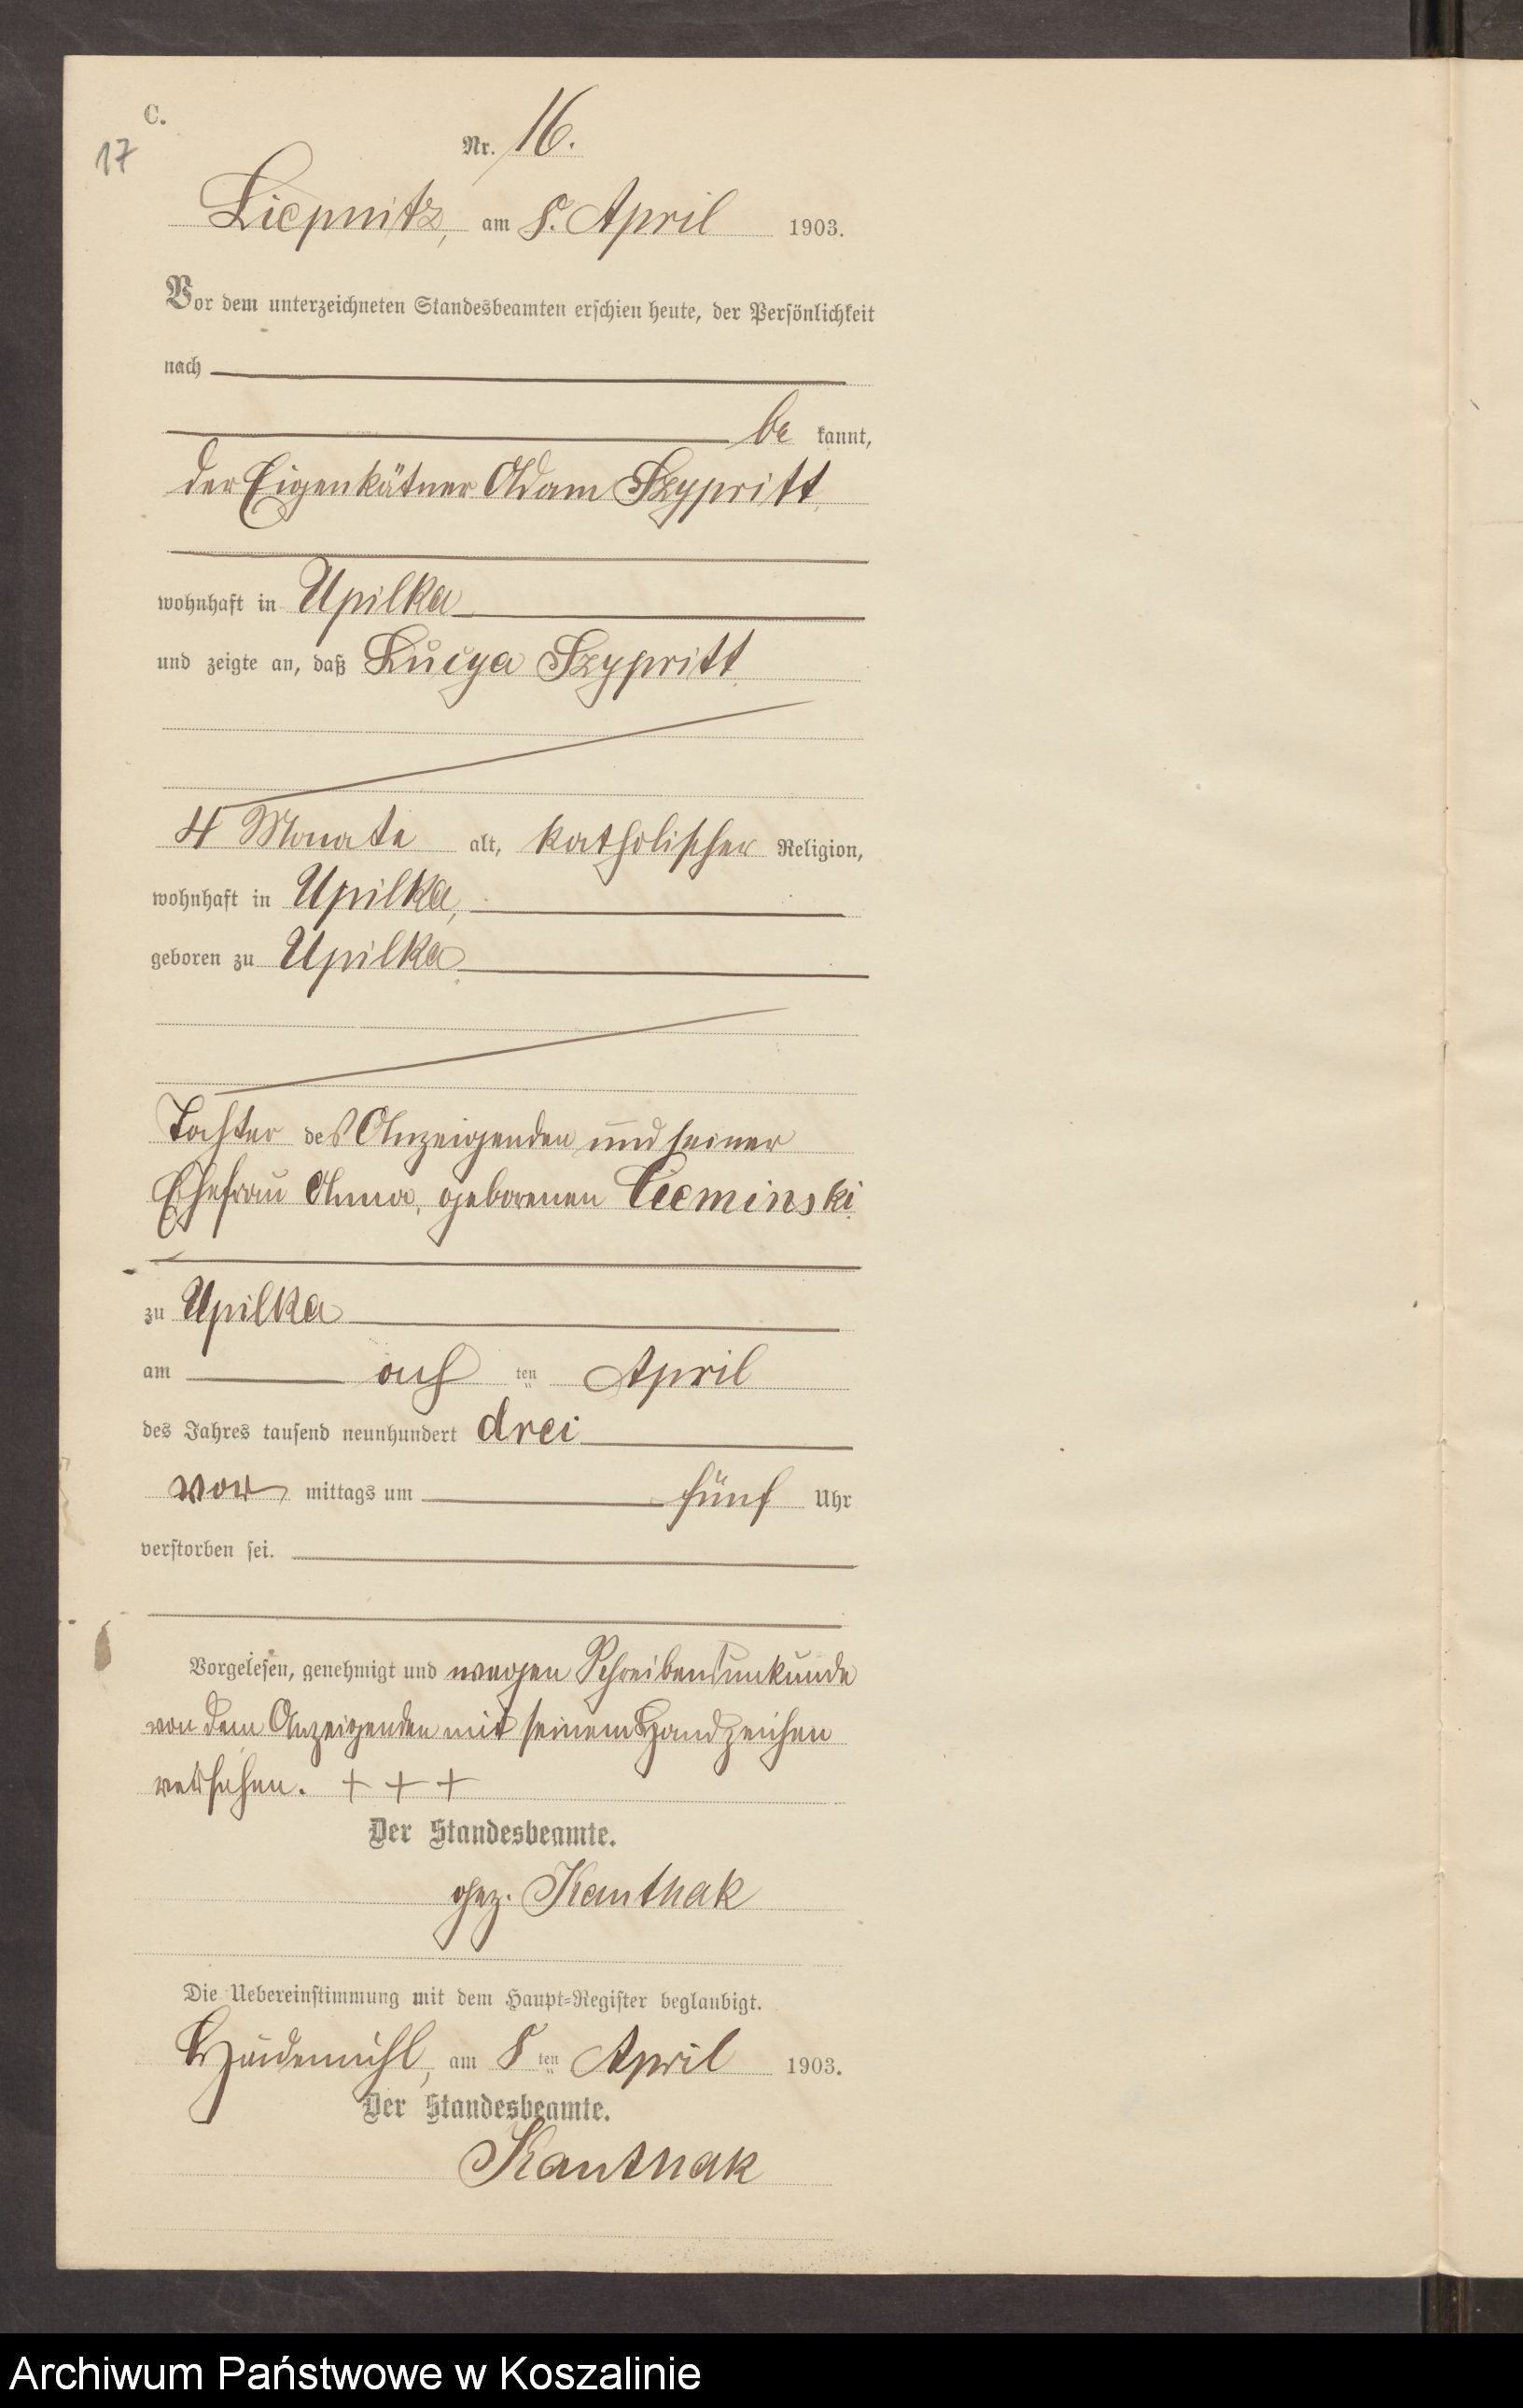 C.
17
Nr. 16.
Liepnitz, am 8. April 1903.
Vor dem unterzeichneten Standesbeamten erschien heute, der Persönlichkeit
nach
be kannt,
der Eigenkätner Adam Szypritt
wohnhaft in Upilka
und zeigte an, daß Lucya Szypritt
4 Monate alt, katholischer Religion,
wohnhaft in Upilka,
geboren zu Upilka
Tochter des Anzeigenden und seiner
Ehefrau Anna, geborenen Cieminski
zu Upilka
am acht ten April
des Jahres tausend neunhundert drei
vor mittags um fünf Uhr
verstorben sei.
Vorgelesen, genehmigt und wegen Schreibensunkunde
von dem Anzeigenden mit seinem Handzeichen
versehen. + + +
Der Standesbeamte.
gez. Kanthak
Die Uebereinstimmung mit dem Haupt-Register beglaubigt.
Heidemühl, am 8 ten April 1903.
Der Standesbeamte.
Kanthak
Archiwum Państwowe w Koszalinie